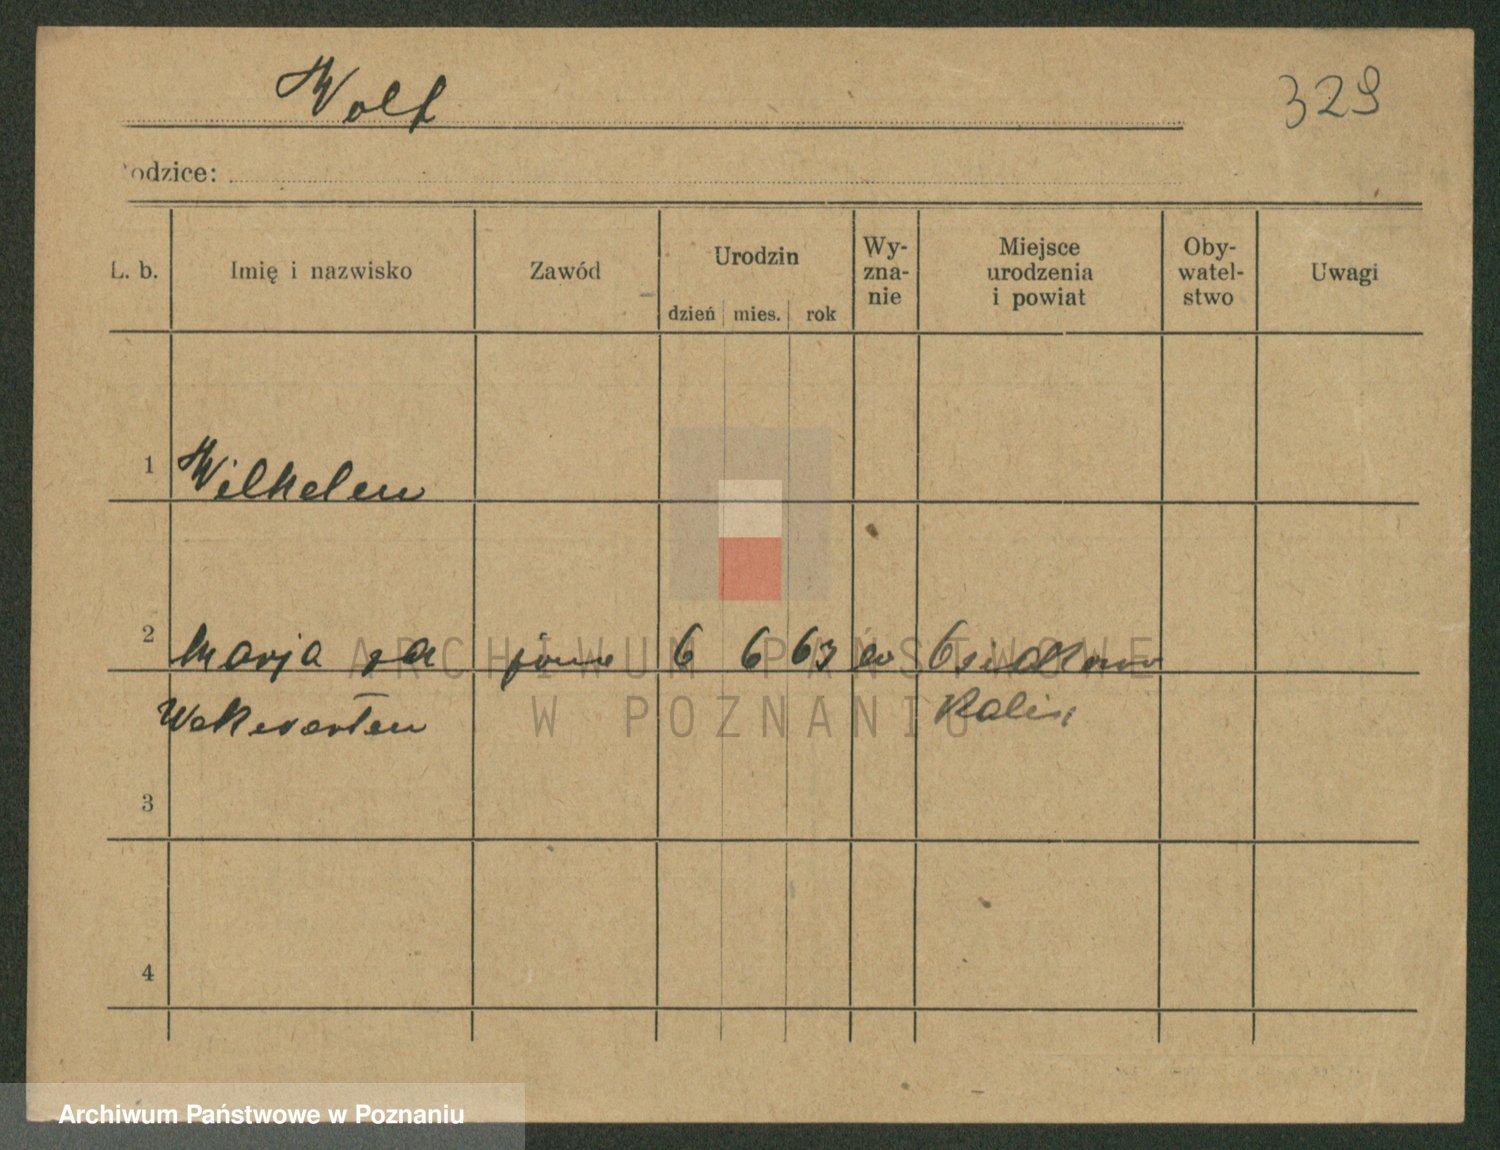 Wolf
329
odzice:
L. b. Imię i nazwisko Zawód Urodzin dzień mies. rok Wy-zna-nie Miejsce urodzenia i powiat Oby-watel-stwo Uwagi
1 Wilhelm
2 Marja 6 6 63 ew
Kalisz
3
4
ARCHIWUM PAŃSTWOWE
W POZNANIU
Archiwum Państwowe w Poznaniu